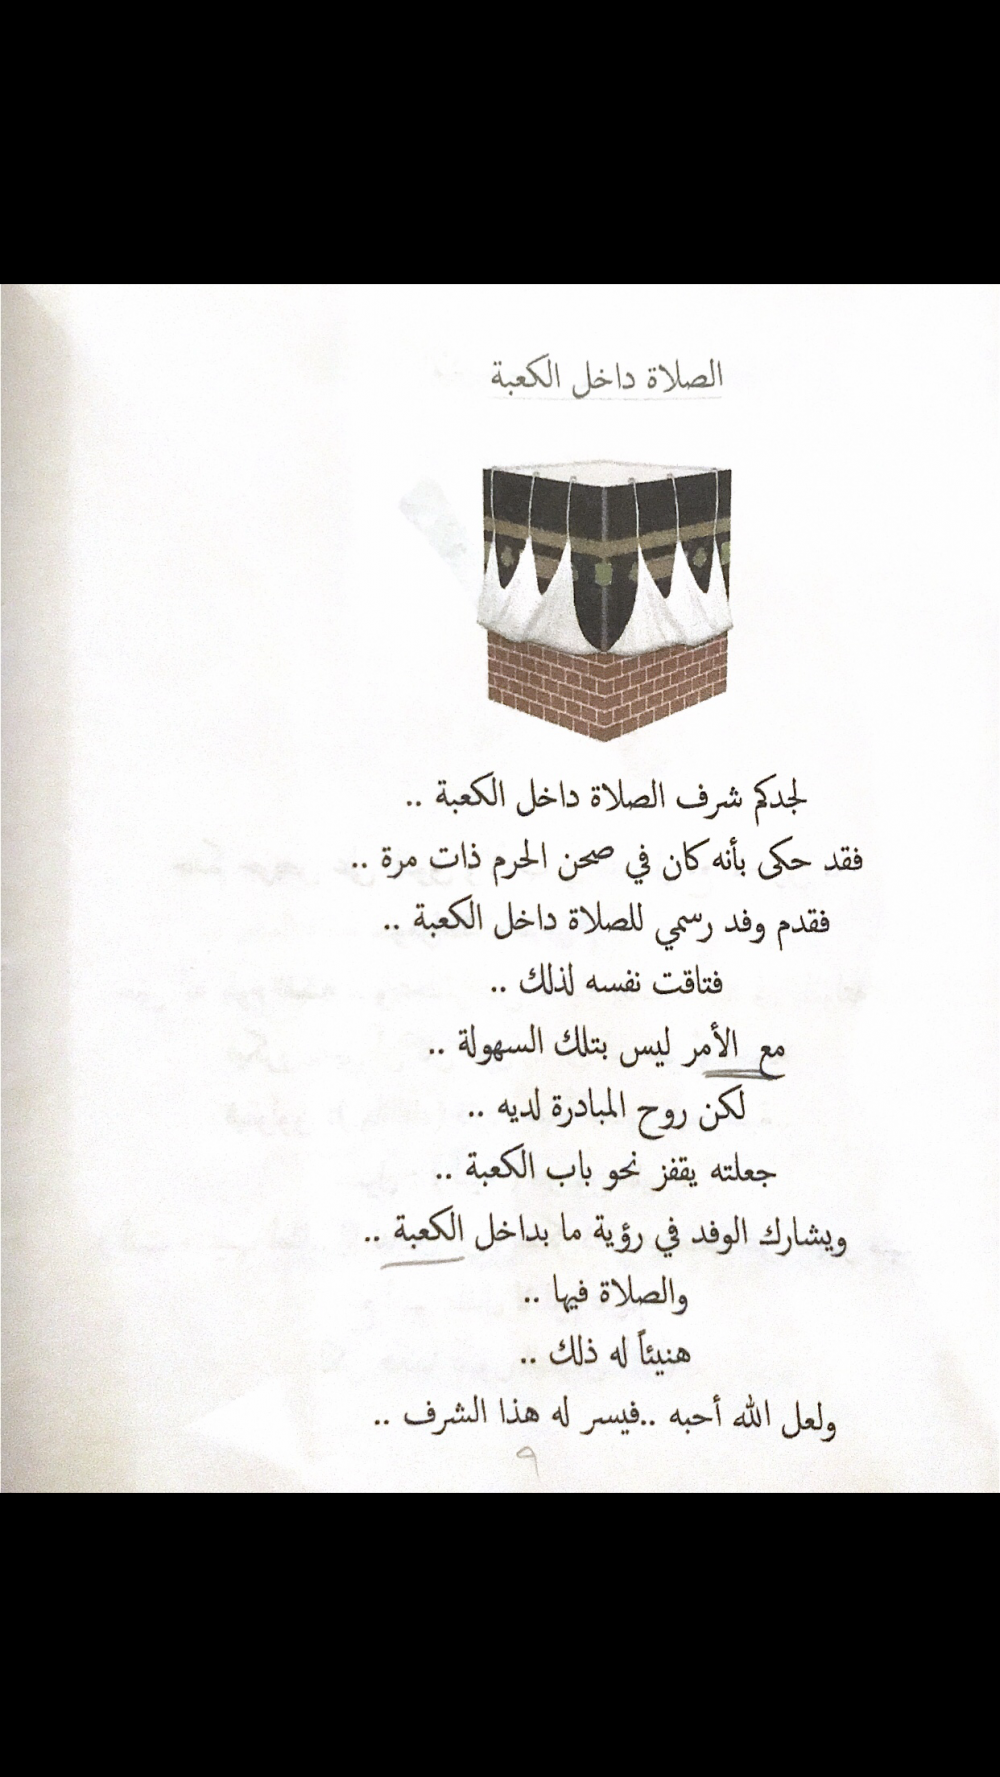 الصلاة داخل الكعبة
لجدكم شرف الصلاة داخل الكعبة ..
فقد حكى بأنه كان في صحن الحرم ذات مرة ..
فقدم وفد رسمي للصلاة داخل الكعبة ..
فتاقت نفسه لذلك ..
مع الأمر ليس بتلك السهولة ..
لكن روح المبادرة لديه ..
جعلته يقفز نحو باب الكعبة ..
ويشارك الوفد في رؤية ما بداخل الكعبة ..
والصلاة فيها ..
هنيئاً له ذلك ..
ولعل الله أحبه ..فيسر له هذا الشرف ..
٩